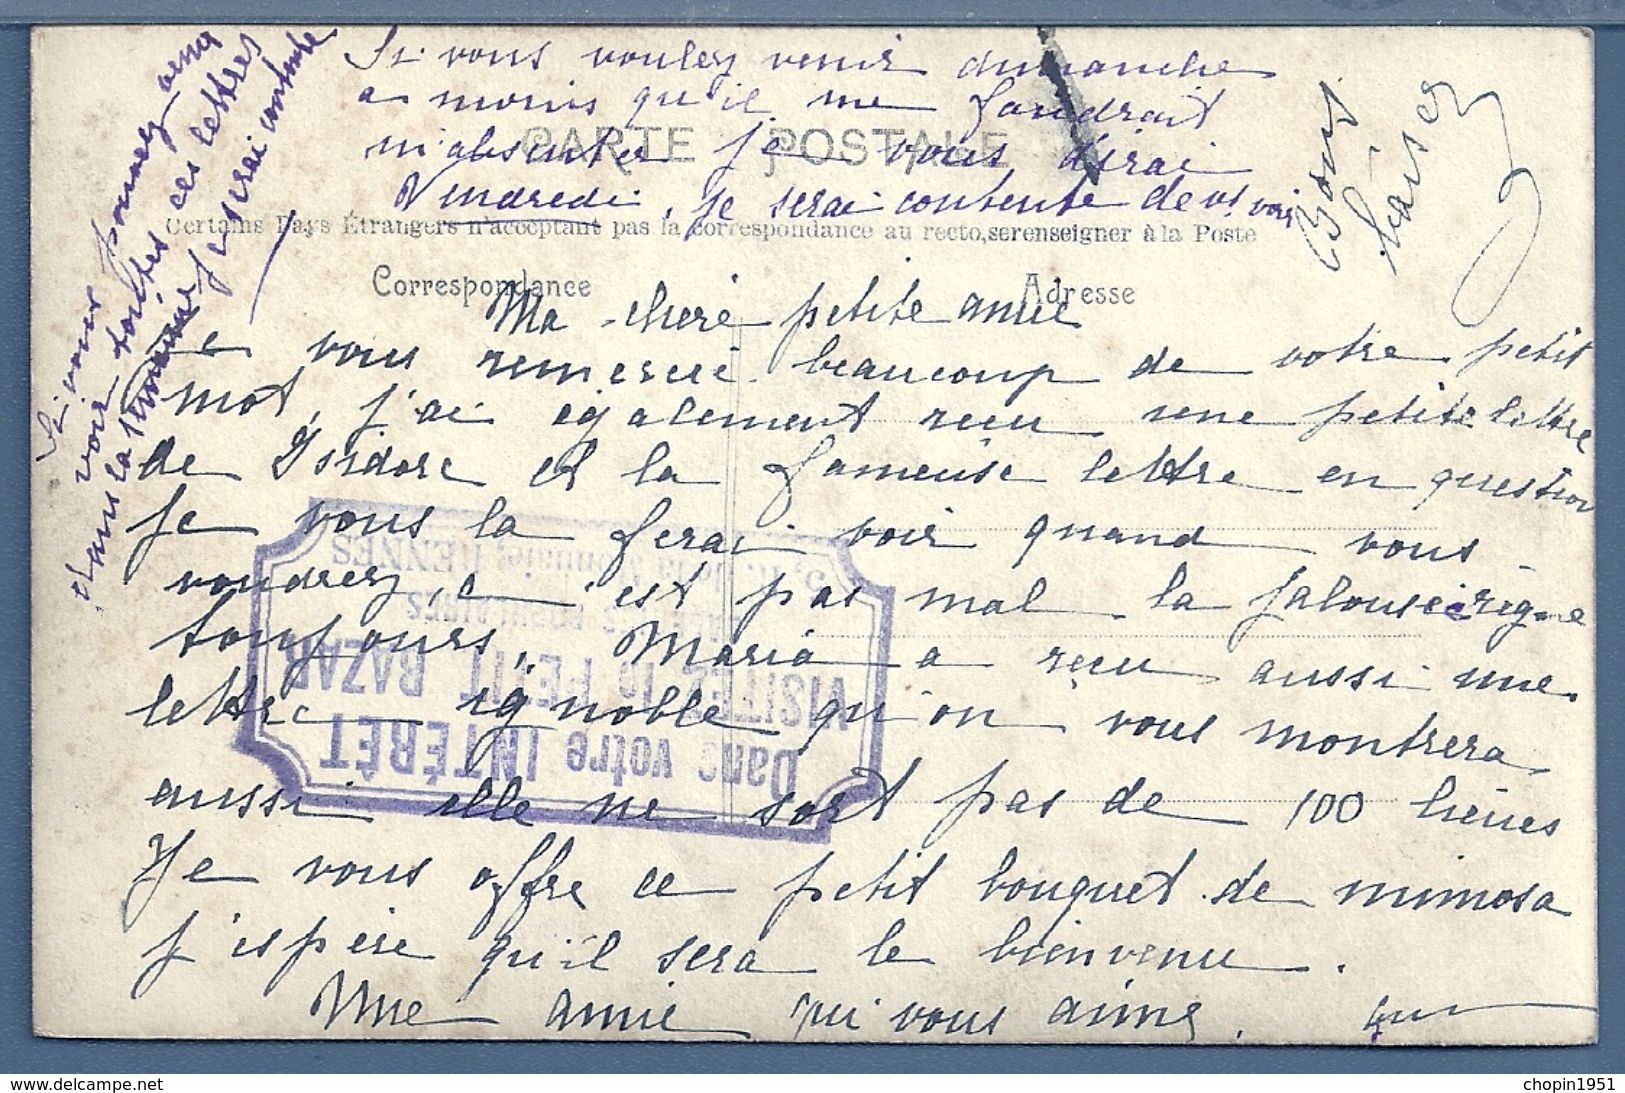 Si vous voulez venir dimanche
a moins qu'il me faudrait
m'absenter je vous dirai
Vendredi, je serai contente de vs voir
Bons
baisers
CARTE POSTALE
Certains Pays Étrangers n'acceptant pas la correspondance au recto, se renseigner à la Poste
Correspondance
Adresse
Ma chère petite amie
Je vous remercie beaucoup de votre petit
mot, j'ai également reçu une petite lettre
de Isidore et la fameuse lettre en question
Je vous la ferai voir quand vous
voudrez, c'est pas mal la jalousie règne
toujours, Maria a reçu aussi une
lettre ignoble qu'on vous montrera
aussi elle ne sort pas de 100 lieues
Je vous offre ce petit bouquet de mimosa
j'espère qu'il sera le bienvenu.
Une amie qui vous aime.
Si vous pouvez venir
voir toutes ces lettres
dans la semaine je serai contente
Dans votre INTÉRÊT
VISITEZ le PETIT BAZAR
POPULAIRES
5, R. de la Monnaie, RENNES
chopin1951